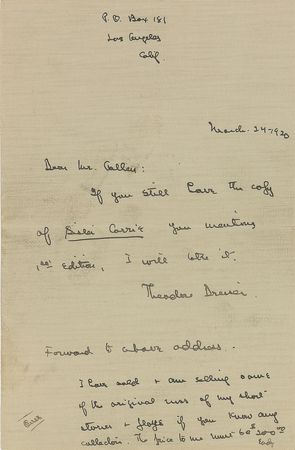 P.O. Box 181
Los Angeles
Calif.
March. 24-1920
Dear Mr. Cullen:
If you still have the copy
of Sister Carrie you mention,
1st edition, I will take it.
Theodore Dreiser.
Forward to above address.
I have sold + am selling some
of the original mss of my short
stories + plays if you know any
collectors. The price to me must be